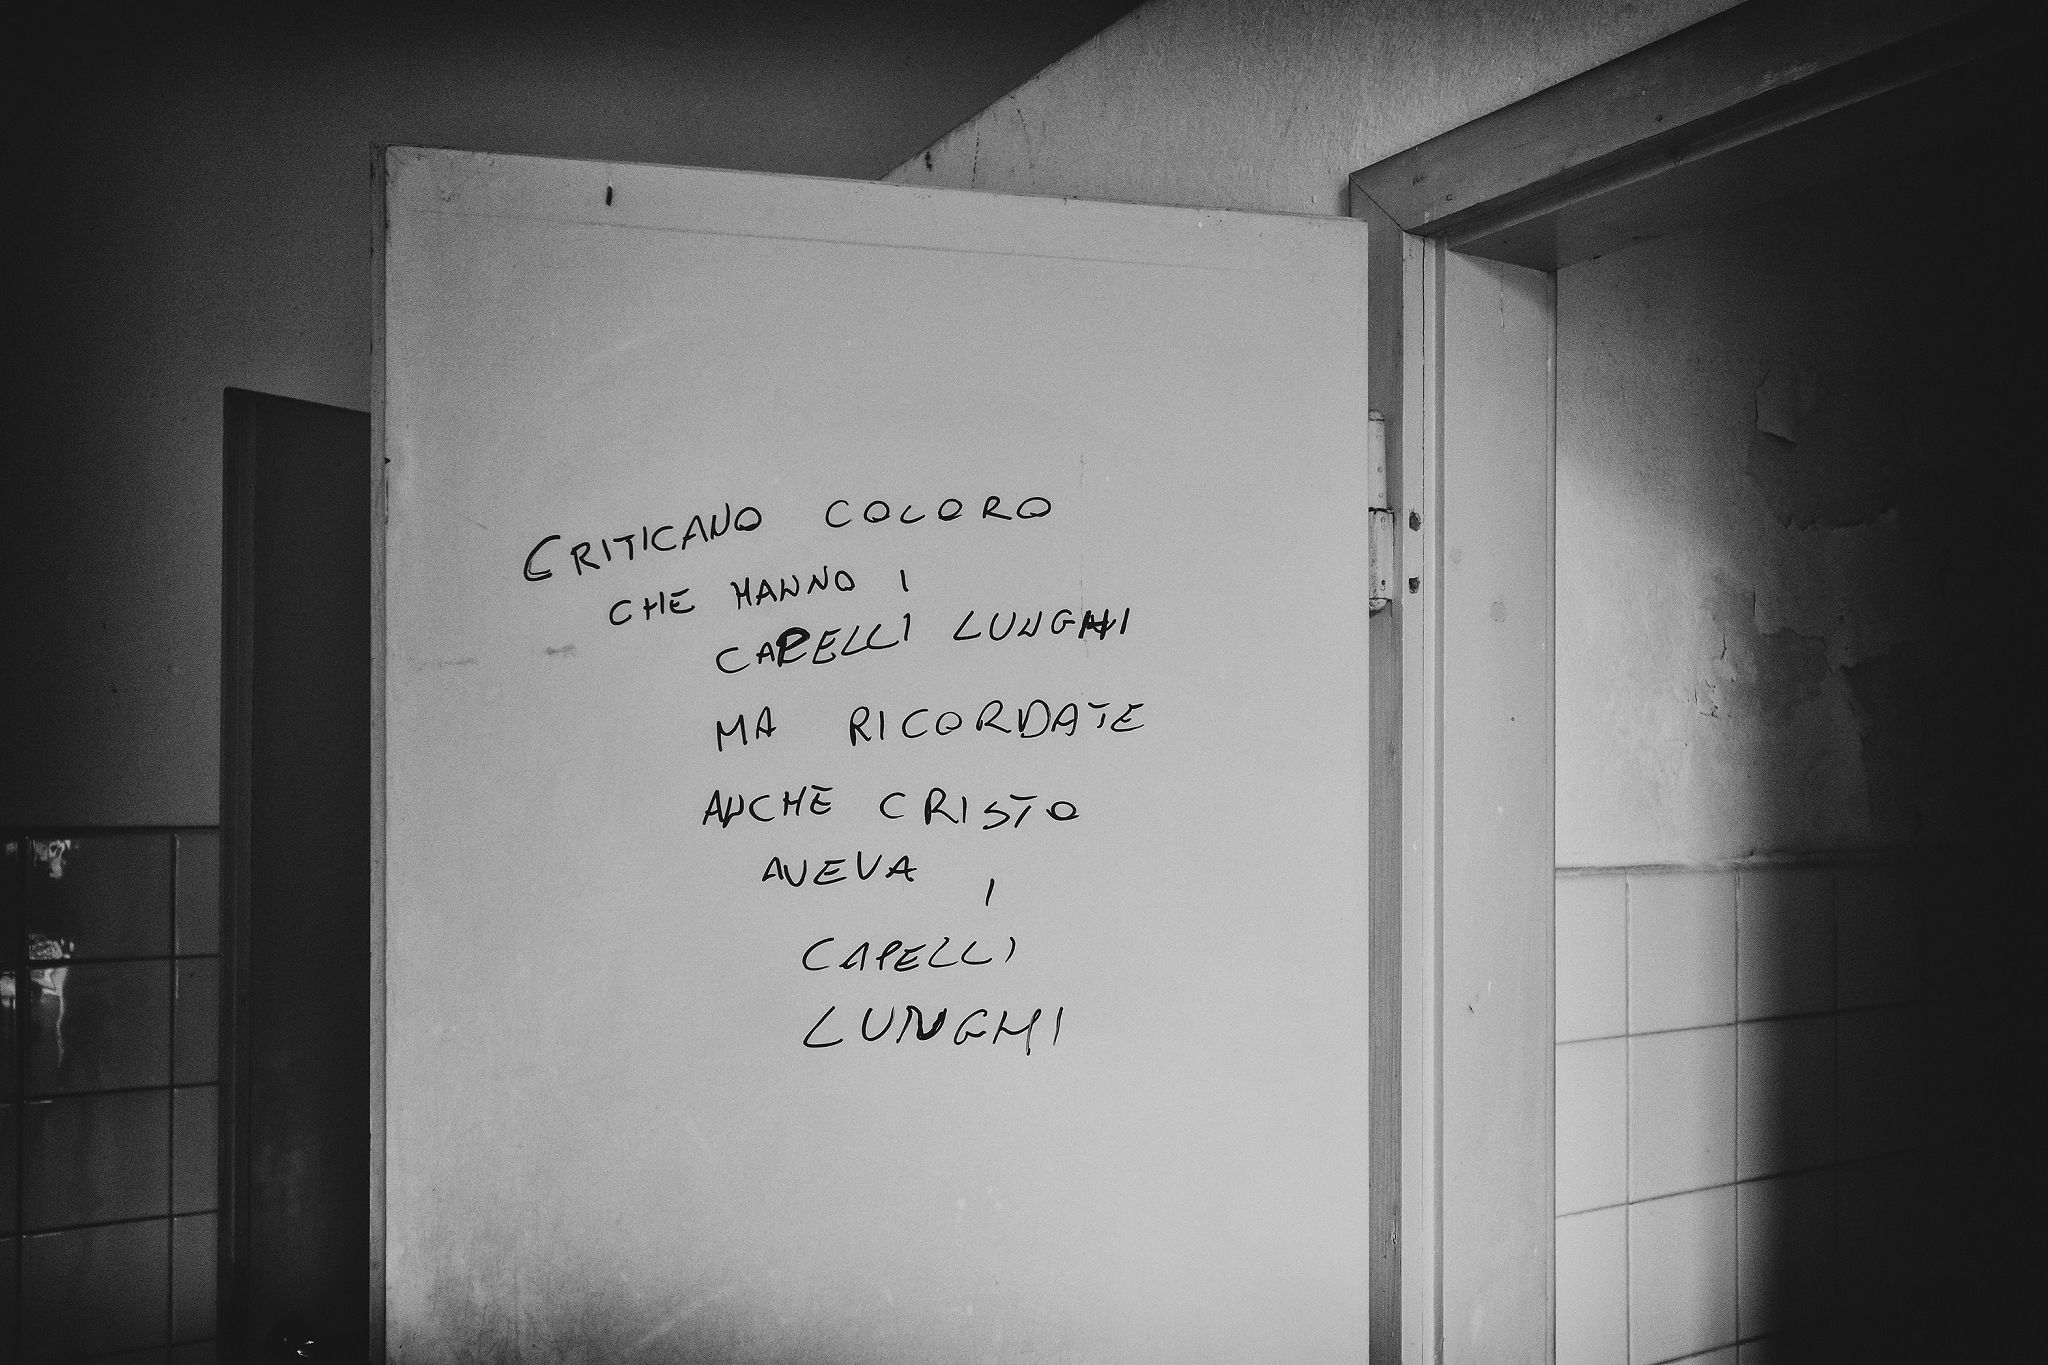 CRITICANO COLORO
CHE HANNO I
CAPELLI LUNGHI
MA RICORDATE
ANCHE CRISTO
AVEVA I
CAPELLI
LUNGHI